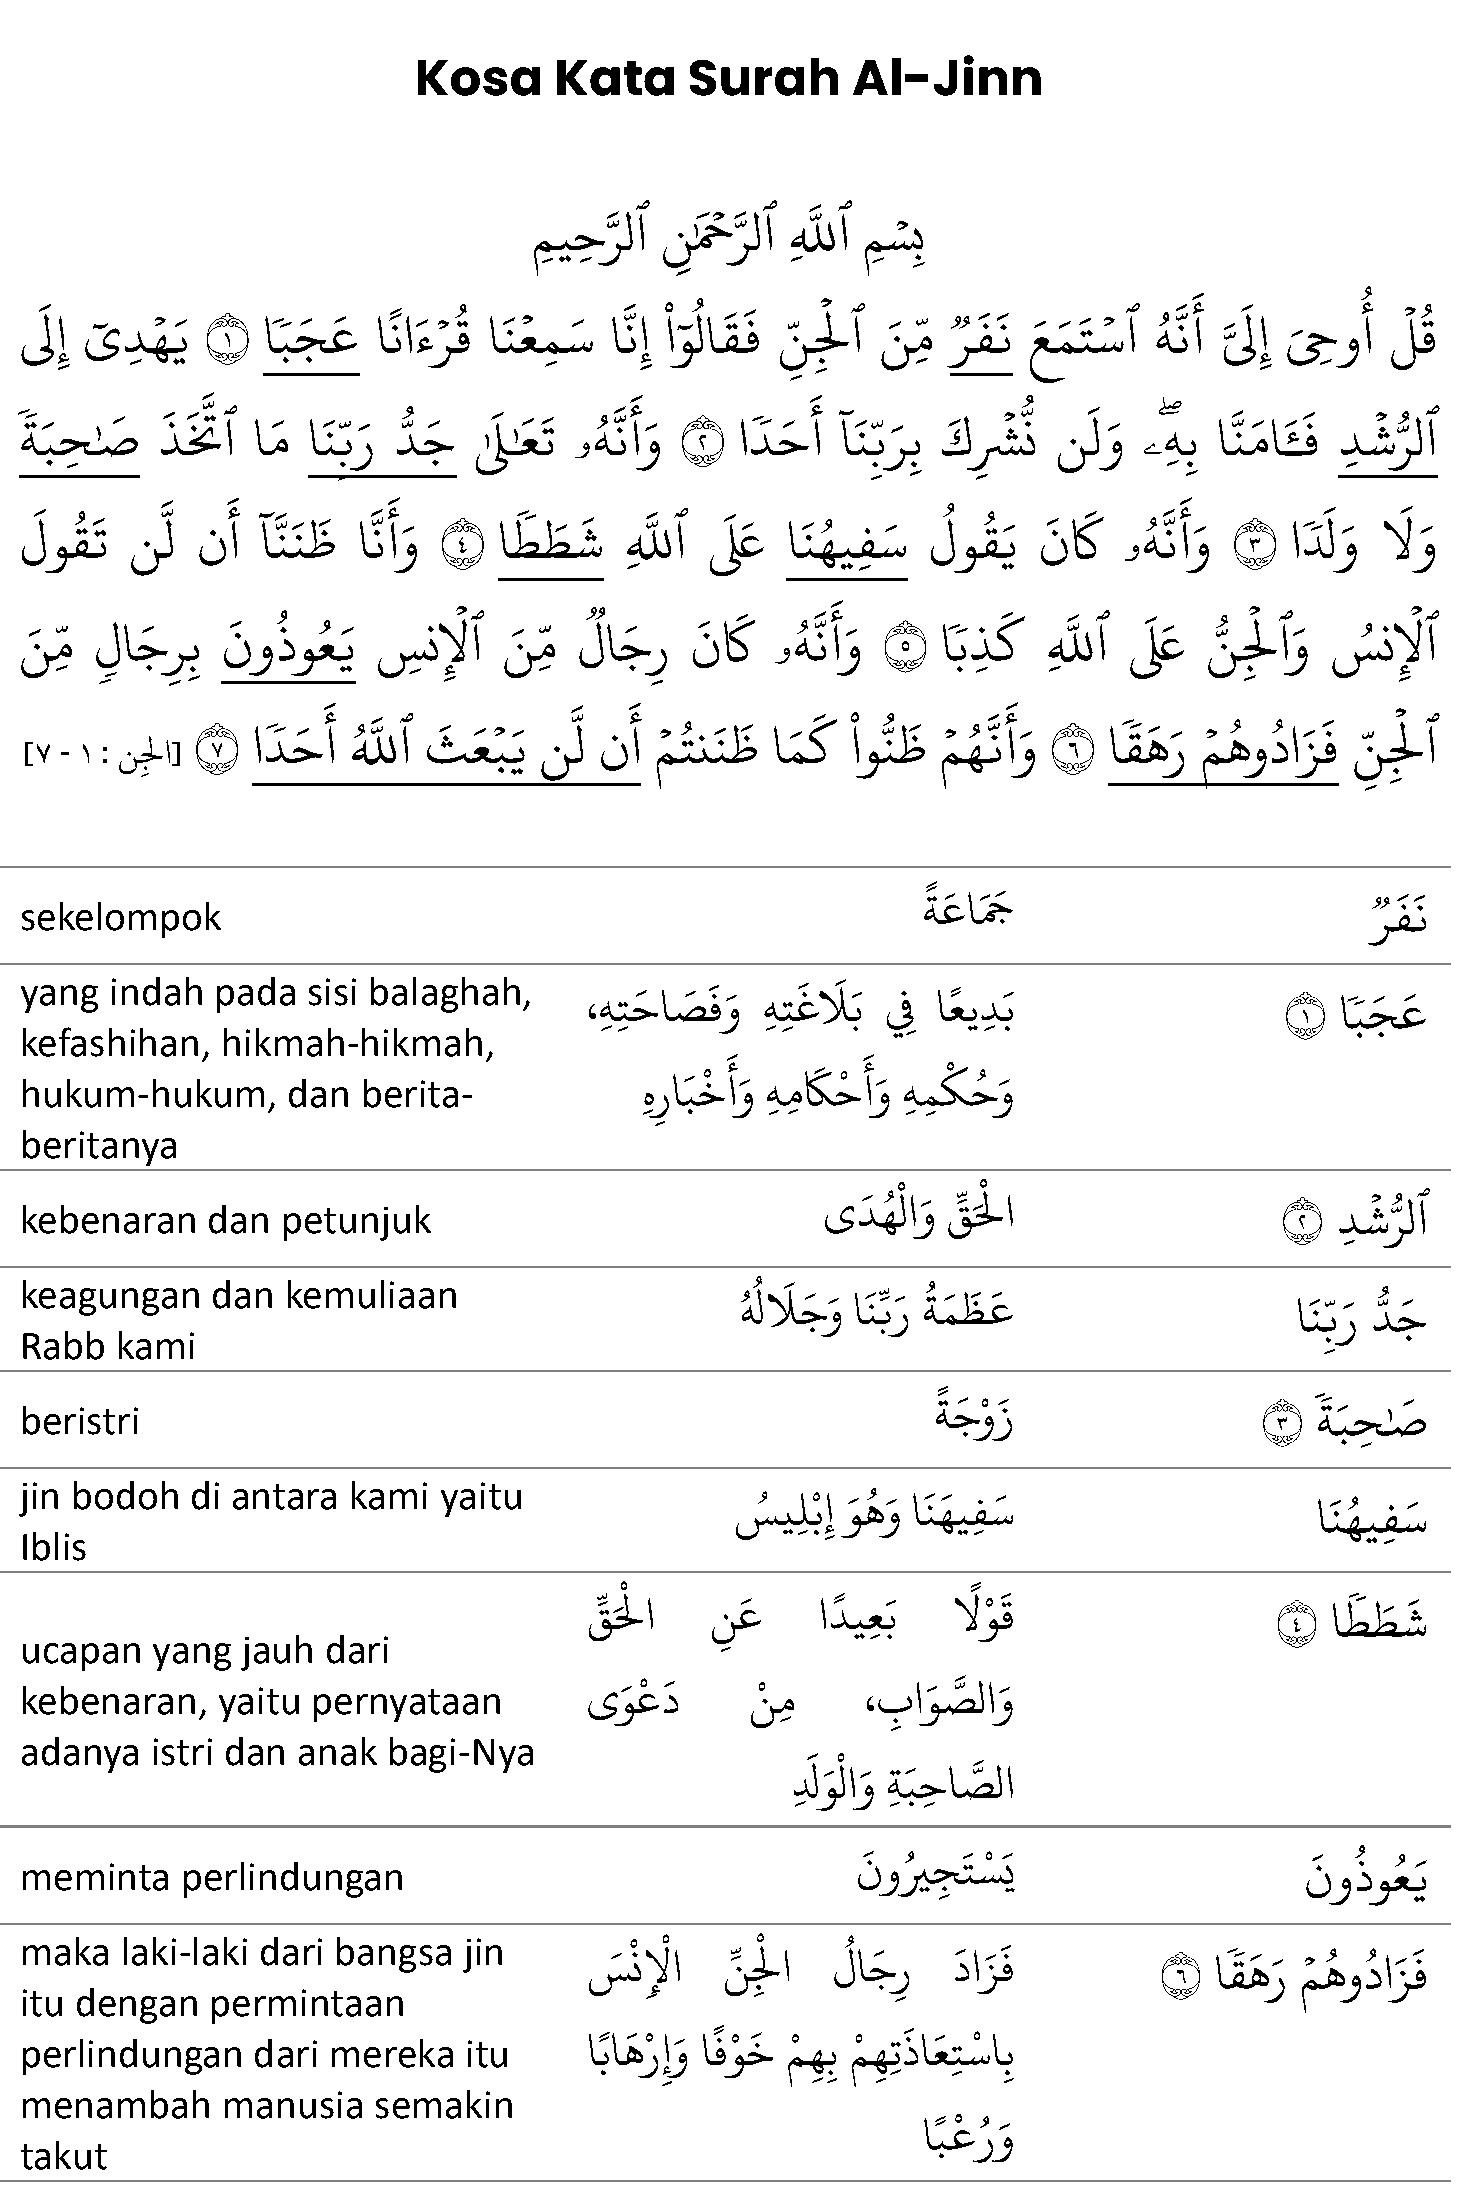 Kosa Kata Surah Al-Jinn
بِسۡمِ ٱللَّهِ ٱلرَّحۡمَٰنِ ٱلرَّحِيمِ
قُلۡ أُوحِيَ إِلَيَّ أَنَّهُ ٱسۡتَمَعَ نَفَرٞ مِّنَ ٱلۡجِنِّ فَقَالُوٓاْ إِنَّا سَمِعۡنَا قُرۡءَانًا عَجَبٗا ١ يَهۡدِيٓ إِلَى
ٱلرُّشۡدِ فَـَٔامَنَّا بِهِۦۖ وَلَن نُّشۡرِكَ بِرَبِّنَآ أَحَدٗا ٢ وَأَنَّهُۥ تَعَٰلَىٰ جَدُّ رَبِّنَا مَا ٱتَّخَذَ صَٰحِبَةٗ
وَلَا وَلَدٗا ٣ وَأَنَّهُۥ كَانَ يَقُولُ سَفِيهُنَا عَلَى ٱللَّهِ شَطَطٗا ٤ وَأَنَّا ظَنَنَّآ أَن لَّن تَقُولَ
ٱلۡإِنسُ وَٱلۡجِنُّ عَلَى ٱللَّهِ كَذِبٗا ٥ وَأَنَّهُۥ كَانَ رِجَالٞ مِّنَ ٱلۡإِنسِ يَعُوذُونَ بِرِجَالٖ مِّنَ
ٱلۡجِنِّ فَزَادُوهُمۡ رَهَقٗا ٦ وَأَنَّهُمۡ ظَنُّواْ كَمَا ظَنَنتُمۡ أَن لَّن يَبۡعَثَ ٱللَّهُ أَحَدٗا ٧ [الجِن : ١ - ٧]
نَفَرٞ
جَمَاعَةً
sekelompok
عَجَبٗا ١
بَدِيعًا فِي بَلَاغَتِهِ وَفَصَاحَتِهِ،
وَحُكْمِهِ وَأَحْكَامِهِ وَأَخْبَارِهِ
yang indah pada sisi balaghah,
kefashihan, hikmah-hikmah,
hukum-hukum, dan berita-
beritanya
ٱلرُّشۡدِ ٢
الْحَقِّ وَالْهُدَى
kebenaran dan petunjuk
جَدُّ رَبِّنَا
عَظَمَةُ رَبِّنَا وَجَلَالُهُ
keagungan dan kemuliaan
Rabb kami
صَٰحِبَةٗ ٣
زَوْجَةً
beristri
سَفِيهُنَا
سَفِيهَنَا وَهُوَ إِبْلِيسُ
jin bodoh di antara kami yaitu
Iblis
شَطَطٗا ٤
قَوْلًا بَعِيدًا عَنِ الْحَقِّ
وَالصَّوَابِ، مِنْ دَعْوَى
الصَّاحِبَةِ وَالْوَلَدِ
ucapan yang jauh dari
kebenaran, yaitu pernyataan
adanya istri dan anak bagi-Nya
يَعُوذُونَ
يَسْتَجِيرُونَ
meminta perlindungan
فَزَادُوهُمۡ رَهَقٗا ٦
فَزَادَ رِجَالُ الْجِنِّ الْإِنْسَ
بِاسْتِعَاذَتِهِمْ بِهِمْ خَوْفًا وَإِرْهَابًا
وَرُعْبًا
maka laki-laki dari bangsa jin
itu dengan permintaan
perlindungan dari mereka itu
menambah manusia semakin
takut